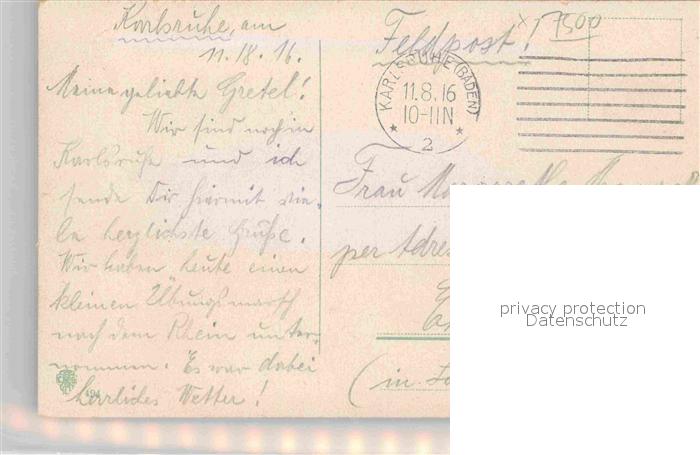 Karlsruhe, am
11.18.16.
Meine geliebte Gretel!
Wir sind noch in
Karlsruhe und ich
sende Dir hiermit vie-
le herzlichste Grüße.
Wir haben heute einen
kleinen Übungsmarsch
nach dem Rhein unter-
nommen. Es war dabei
herrliches Wetter!
494
Feldpost!
7500
KARLSRUHE (BADEN)
11.8.16
10-11N
2
Frau
per Adres
(in
privacy protection
Datenschutz